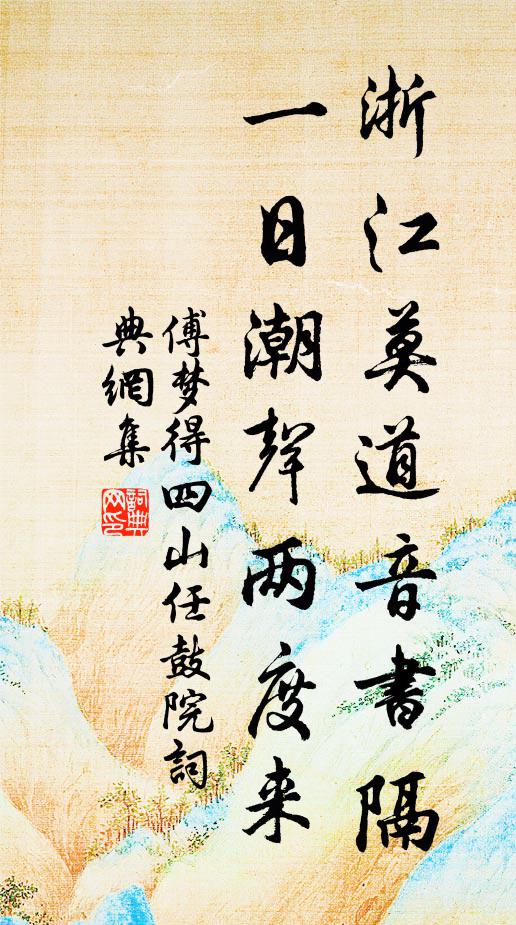 浙江莫道音書隔
一日潮聲两度来
傅梦得四山任鼓院詞
典網集
詞典
网印